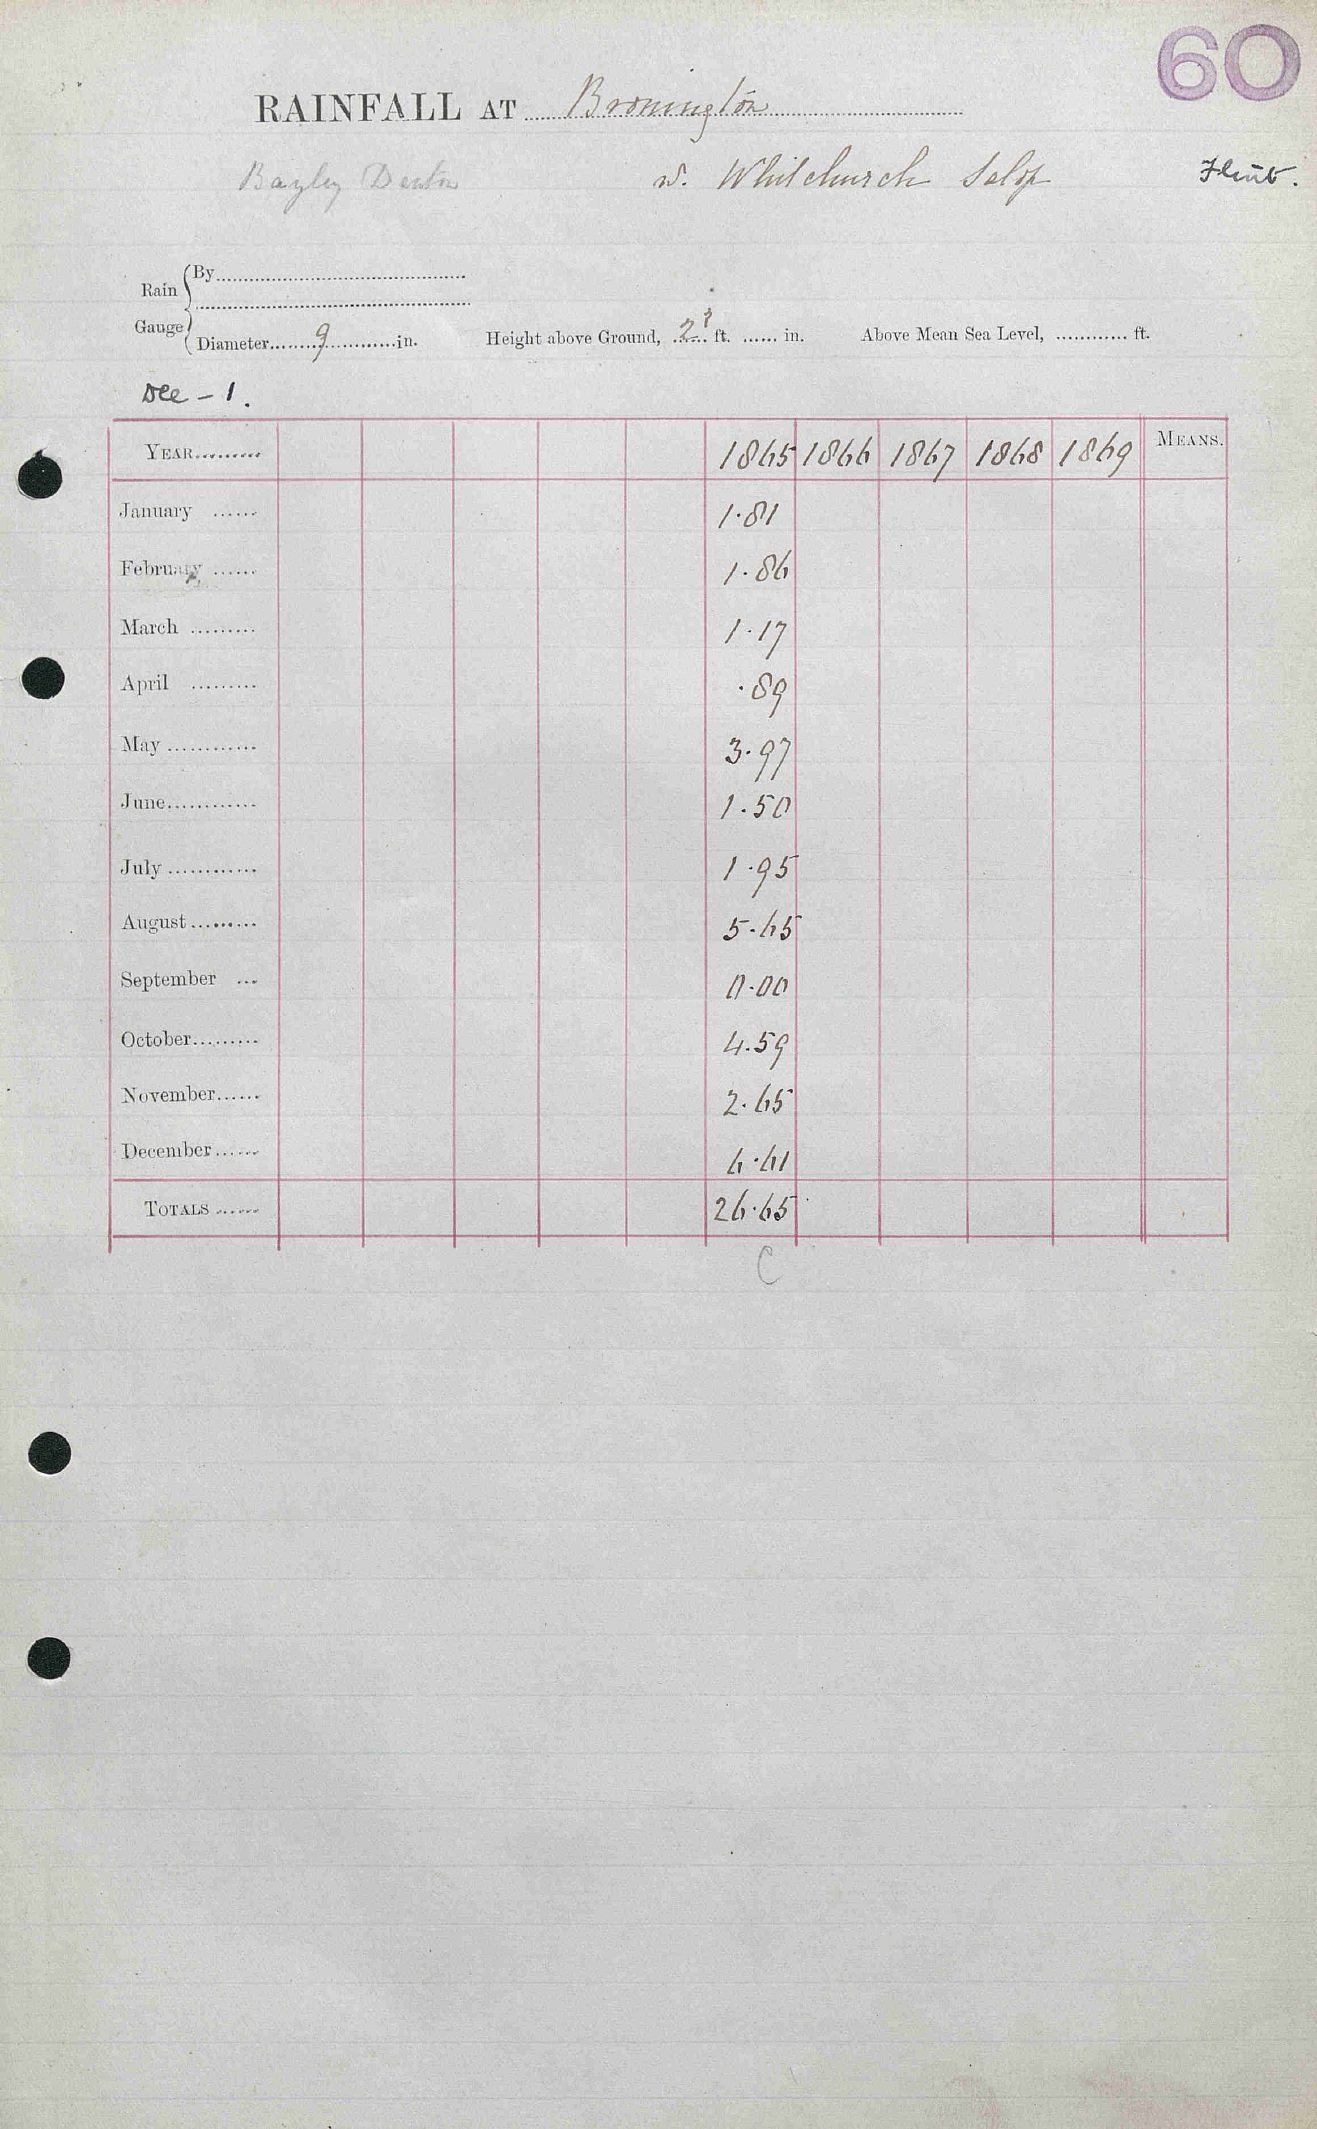 60
RAINFALL AT Bronington
Bayley Denton nr. Whitchurch Salop Flint.
Rain Gauge
By
Diameter 9 in. Height above Ground, 2? ft. in. Above Mean Sea Level, ft.
Dec - 1.
YEAR 1865 1866 1867 1868 1869 MEANS.
January 1.81
February 1.86
March 1.17
April .89
May 3.97
June 1.50
July 1.95
August 5.65
September 0.00
October 4.59
November 2.65
December 6.61
TOTALS 26.65
C